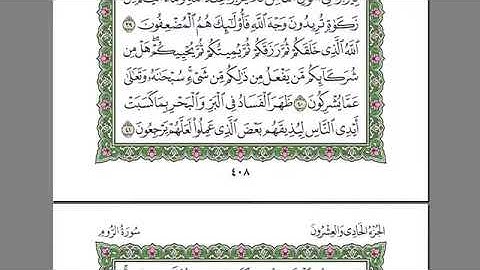 زَكَوٰةٍ تُرِيدُونَ وَجْهَ ٱللَّهِ فَأُو۟لَٰٓئِكَ هُمُ ٱلْمُضْعِفُونَ ٣٩
ٱللَّهُ ٱلَّذِى خَلَقَكُمْ ثُمَّ رَزَقَكُمْ ثُمَّ يُمِيتُكُمْ ثُمَّ يُحْيِيكُمْ هَلْ مِن
شُرَكَآئِكُم مَّن يَفْعَلُ مِن ذَٰلِكُم مِّن شَىْءٍ سُبْحَٰنَهُۥ وَتَعَٰلَىٰ
عَمَّا يُشْرِكُونَ ٤٠ ظَهَرَ ٱلْفَسَادُ فِى ٱلْبَرِّ وَٱلْبَحْرِ بِمَا كَسَبَتْ
أَيْدِى ٱلنَّاسِ لِيُذِيقَهُم بَعْضَ ٱلَّذِى عَمِلُوا۟ لَعَلَّهُمْ يَرْجِعُونَ ٤١
٤٠٨
الجُزْءُ الحَادِى وَالعِشْرُونَ
سُورَةُ الرُّومِ